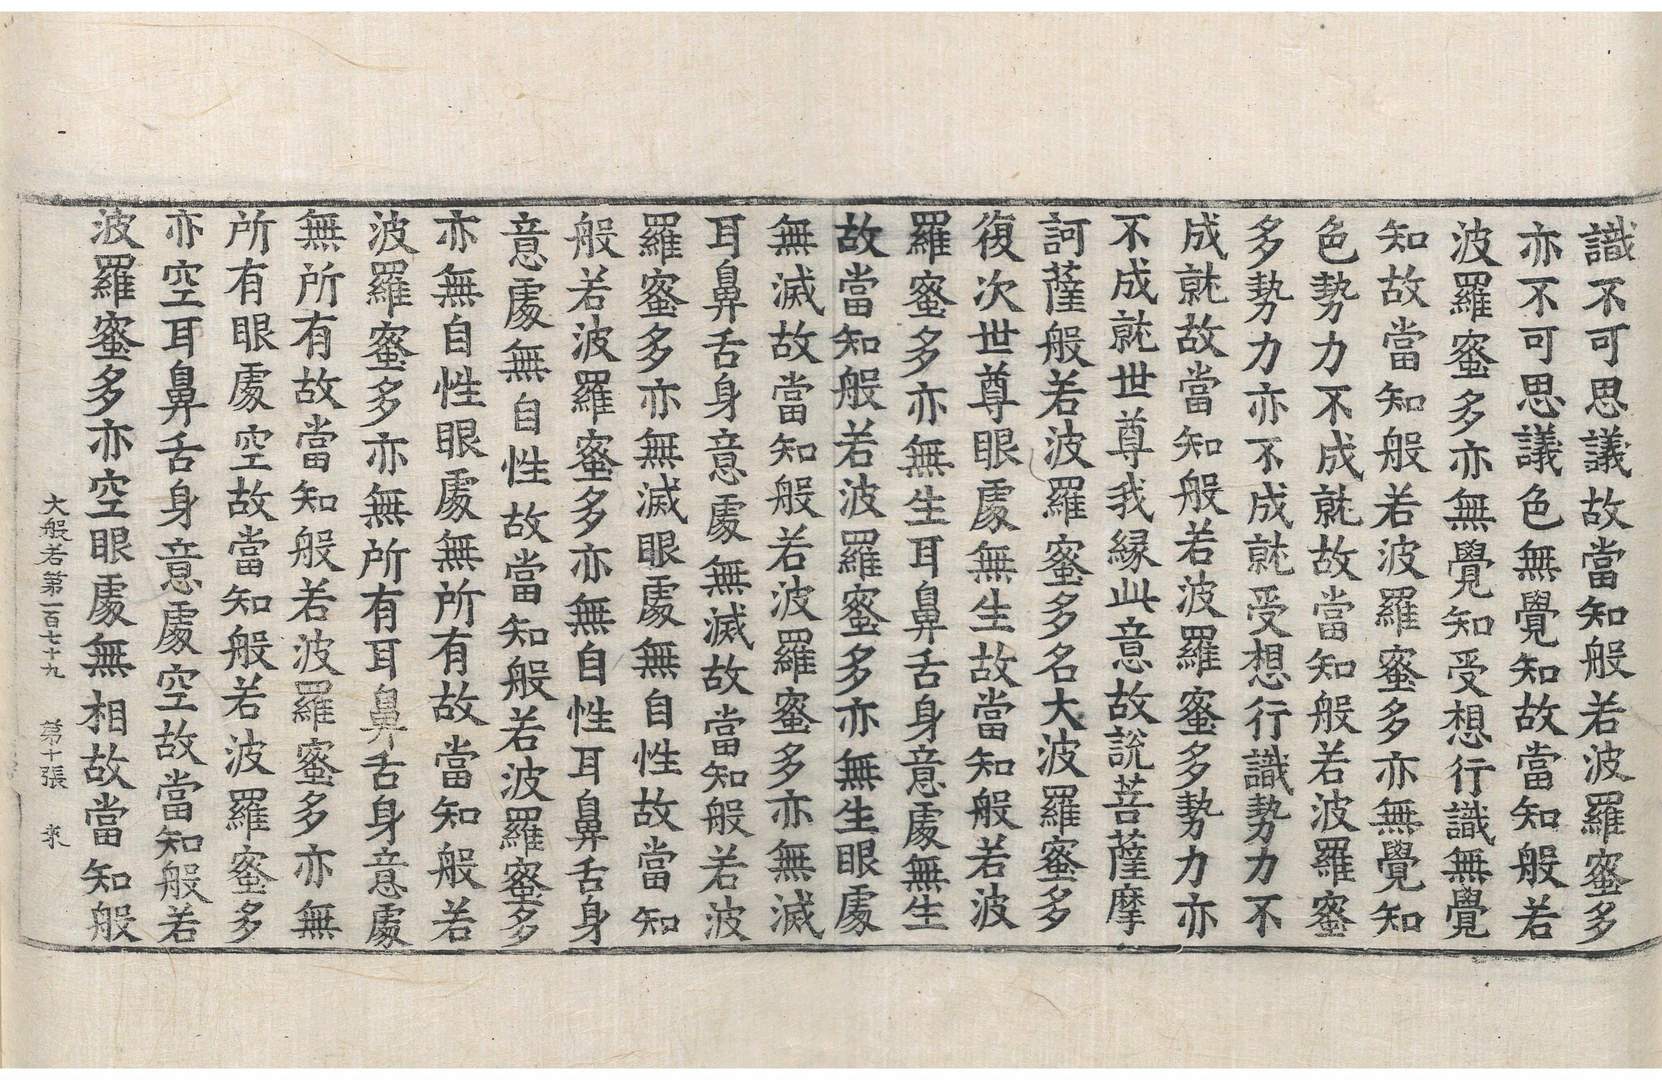 識不可思議故當知般若波羅蜜多
亦不可思議色無覺知故當知般若
波羅蜜多亦無覺知受想行識無覺
知故當知般若波羅蜜多亦無覺知
色勢力不成就故當知般若波羅蜜
多勢力亦不成就受想行識勢力不
成就故當知般若波羅蜜多勢力亦
不成就世尊我緣此意故說菩薩摩
訶薩般若波羅蜜多名大波羅蜜多
復次世尊眼處無生故當知般若波
羅蜜多亦無生耳鼻舌身意處無生
故當知般若波羅蜜多亦無生眼處
無滅故當知般若波羅蜜多亦無滅
耳鼻舌身意處無滅故當知般若波
羅蜜多亦無滅眼處無自性故當知
般若波羅蜜多亦無自性耳鼻舌身
意處無自性故當知般若波羅蜜多
亦無自性眼處無所有故當知般若
波羅蜜多亦無所有耳鼻舌身意處
無所有故當知般若波羅蜜多亦無
所有眼處空故當知般若波羅蜜多
亦空耳鼻舌身意處空故當知般若
波羅蜜多亦空眼處無相故當知般
大般若第一百七十九 第十張 來